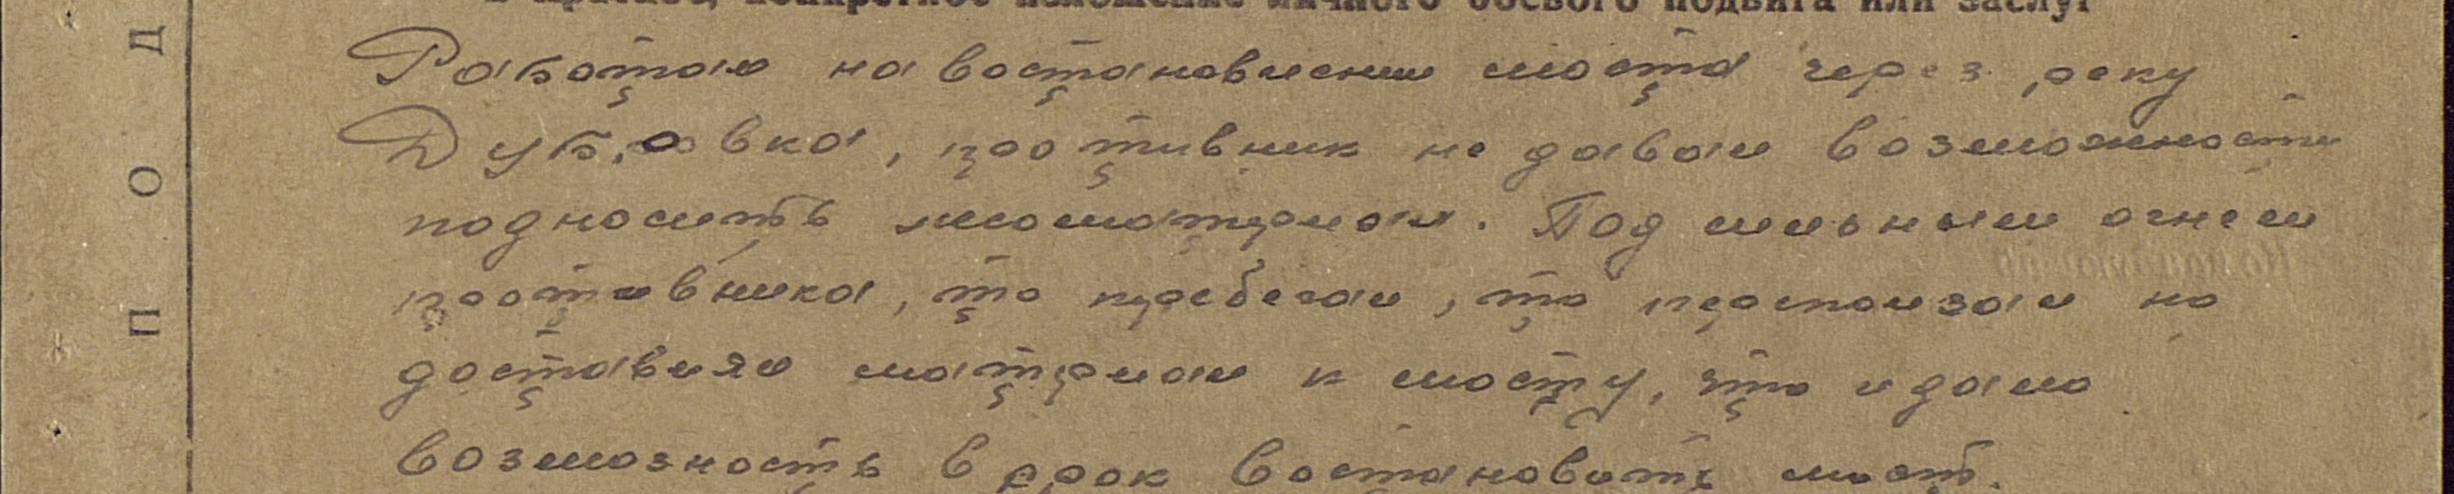 I. Краткое, конкретное изложение личного боевого подвига или заслуг
Работая на востановлении моста через реку
Дубровка, противник не давал возможности
подносить лесоматериал. Под сильным огнем
противника, то перебегая, то переползая но
доставлял материал к мосту, что и дало
возмозность в срок востановить мост.
П О Д